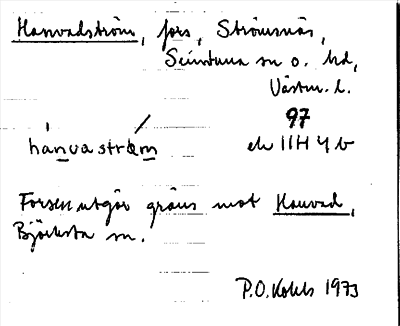 Hanvadström, fors, Strömsnäs,
Simtuna sn o. hd,
Västm. l.
97
hánvastrǿm ek 11H 4b
Forsen utgör gräns mot Hanvad,
Björksta sn.
P.O. 1973